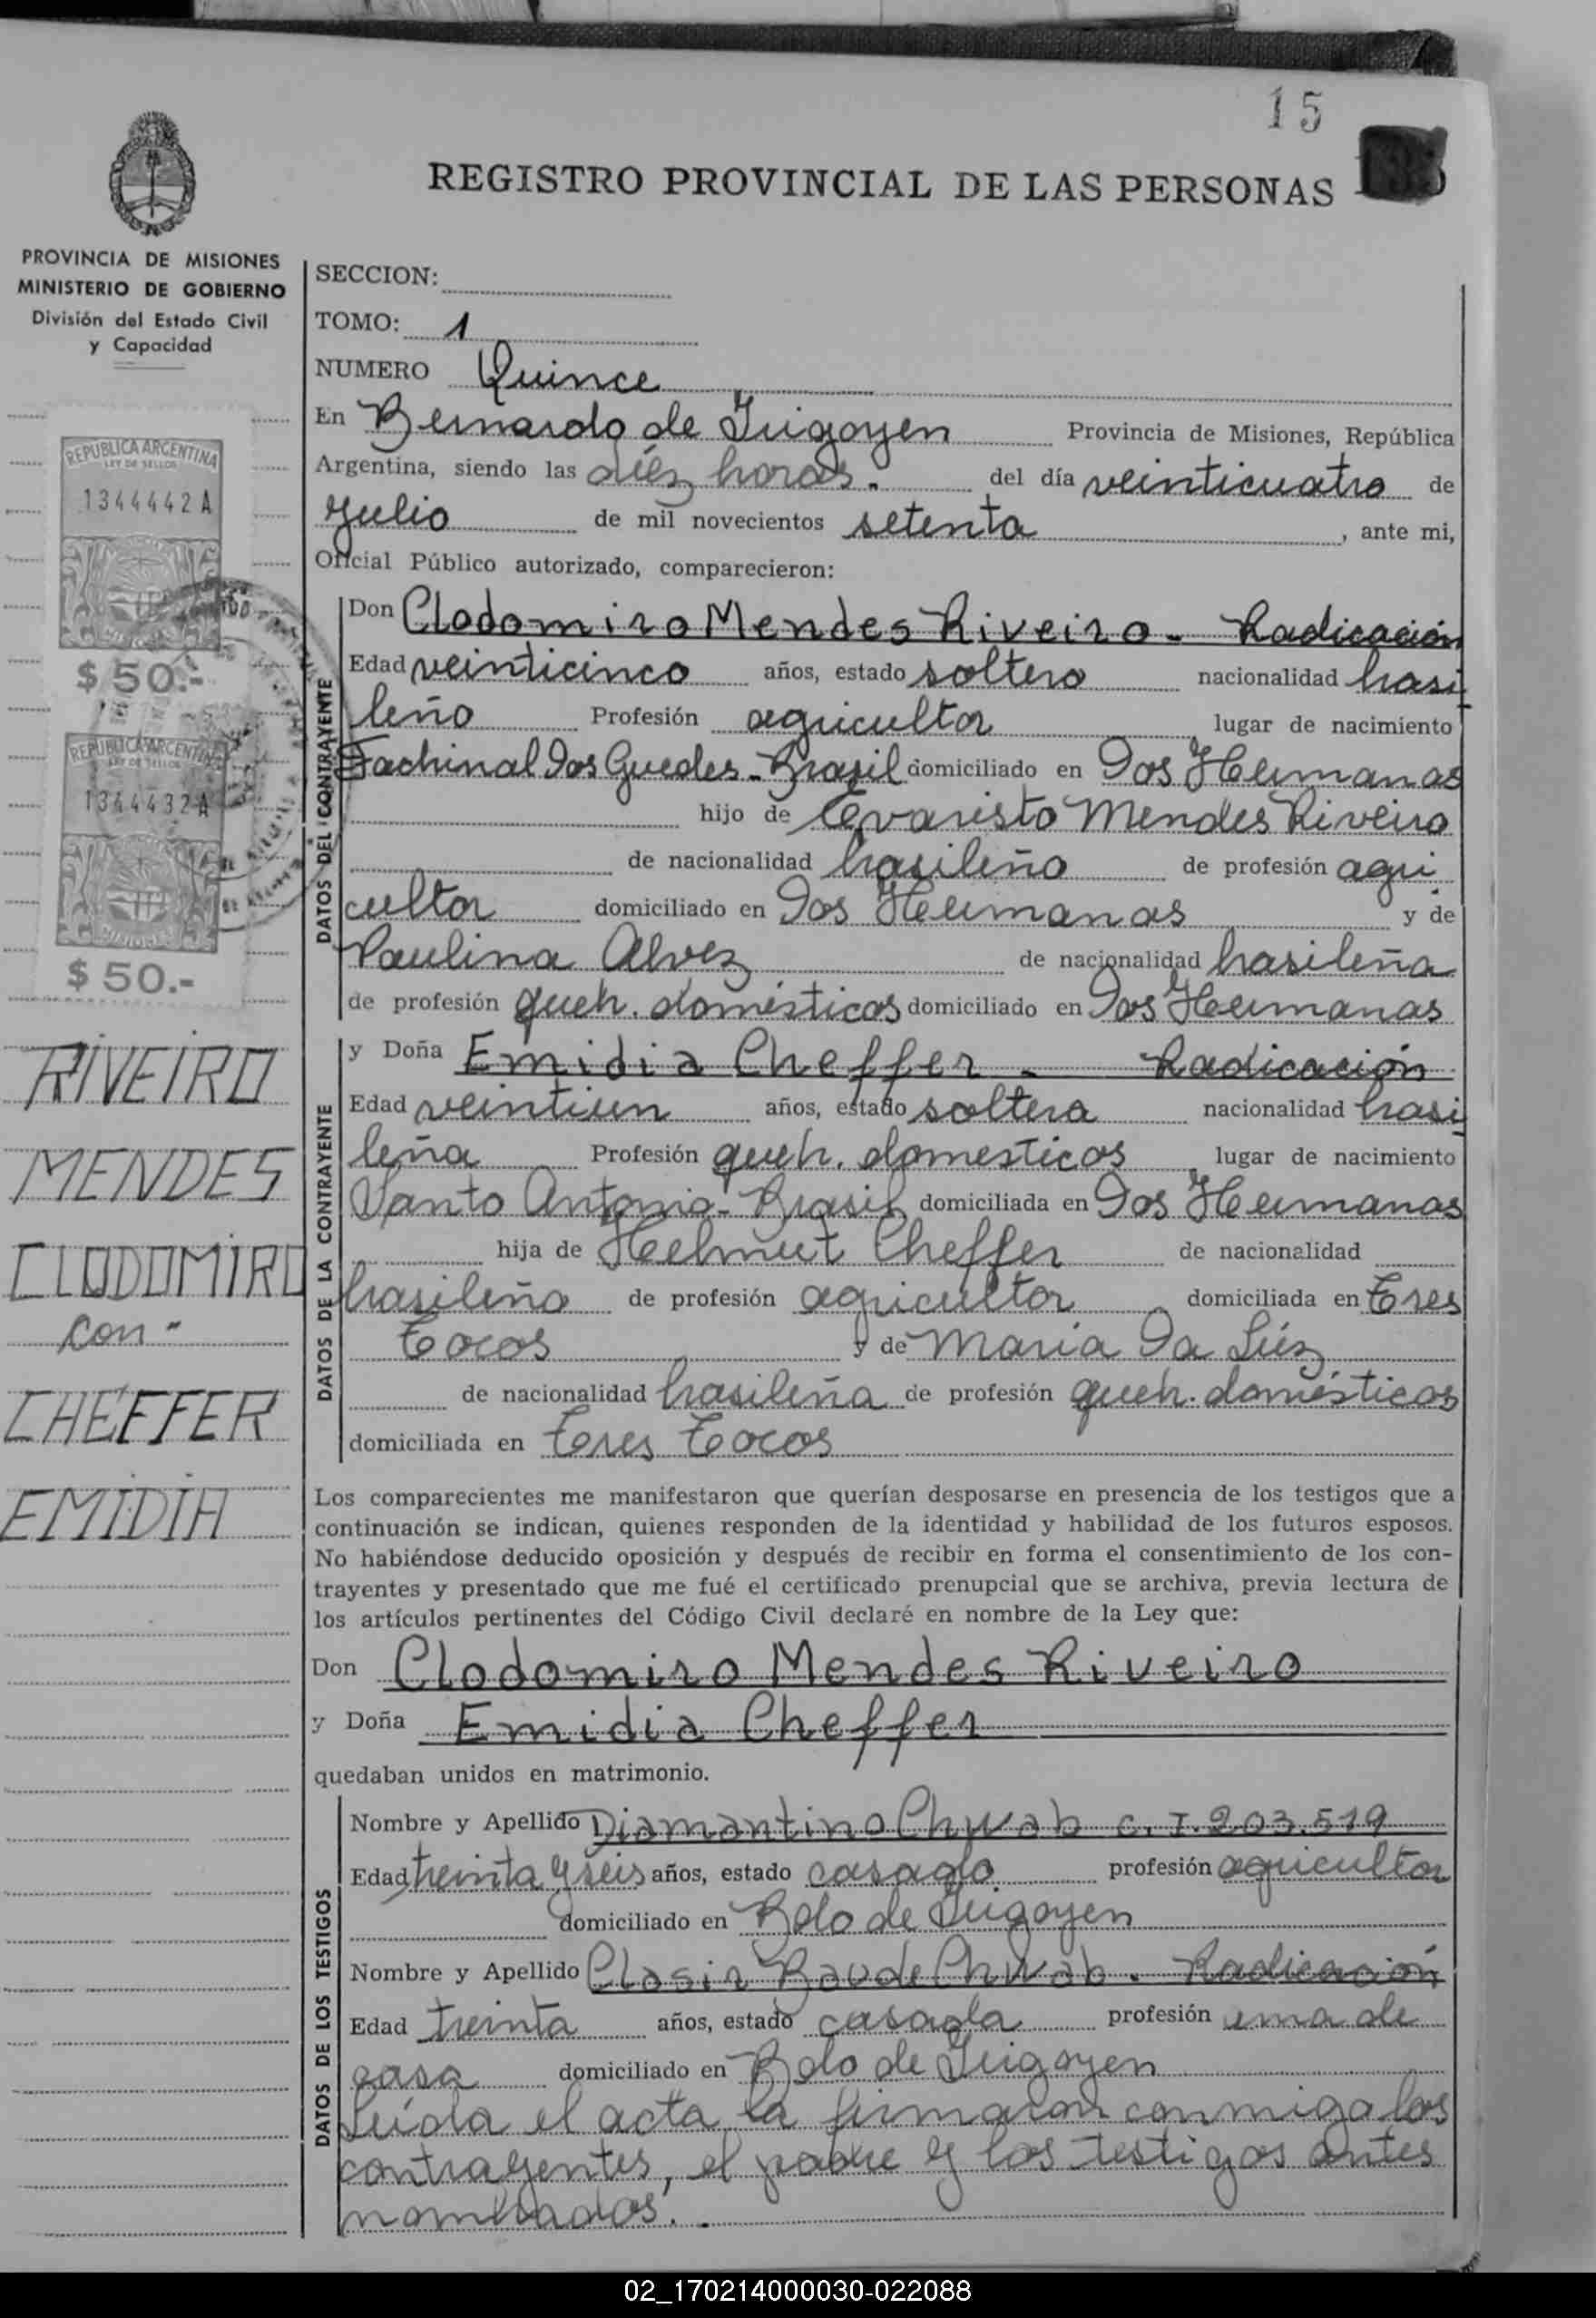 15
REGISTRO PROVINCIAL DE LAS PERSONAS
PROVINCIA DE MISIONES
MINISTERIO DE GOBIERNO
División del Estado Civil
y Capacidad
SECCION:
TOMO: 1
NUMERO Quince
En Bernardo de Irigoyen Provincia de Misiones, República
Argentina, siendo las diéz horas.- del día veinticuatro de
Julio de mil novecientos setenta, ante mi,
Oficial Público autorizado, comparecieron:
REPUBLICA ARGENTINA
LEY DE SELLOS
1344442A
MISIONES
$50.-
REPUBLICA ARGENTINA
LEY DE SELLOS
1344432A
MISIONES
$50.-
RIVEIRO
MENDES
CLODOMIRO
con-
CHEFFER
EMIDIA
DATOS DEL CONTRAYENTE
Don Clodomiro Mendes Riveiro - Radicación
Edad veinticinco años, estado soltero nacionalidad brasi
leño Profesión agricultor lugar de nacimiento
Fachinal Dos Guedes - Brasil domiciliado en Dos Hermanas
hijo de Evaristo Mendes Riveiro
de nacionalidad brasileño de profesión agri
cultor domiciliado en Dos Hermanas y de
Paulina Alvez de nacionalidad brasileña
de profesión queh. domésticos domiciliado en Dos Hermanas
DATOS DE LA CONTRAYENTE
y Doña Emidia Cheffer - Radicación
Edad veintiun años, estado soltera nacionalidad brasi
leña Profesión queh. domesticos lugar de nacimiento
Santo Antonio - Brasil domiciliada en Dos Hermanas
hija de Helmut Cheffer de nacionalidad
brasileño de profesión agricultor domiciliada en Tres
Tocos y de Maria Da Lúz
de nacionalidad brasileña de profesión queh. domésticos
domiciliada en Tres Tocos
Los comparecientes me manifestaron que querían desposarse en presencia de los testigos que a
continuación se indican, quienes responden de la identidad y habilidad de los futuros esposos.
No habiéndose deducido oposición y después de recibir en forma el consentimiento de los con-
trayentes y presentado que me fué el certificado prenupcial que se archiva, previa lectura de
los artículos pertinentes del Código Civil declaré en nombre de la Ley que:
Don Clodomiro Mendes Riveiro
y Doña Emidia Cheffer
quedaban unidos en matrimonio.
DATOS DE LOS TESTIGOS
Nombre y Apellido Diamantino Chwab C.I. 203.519
Edad treinta y seis años, estado casado profesión agricultor
domiciliado en Bdo de Irigoyen
Nombre y Apellido Clasir Bau de Chwab. Radicación
Edad treinta años, estado casada profesión ama de
casa domiciliado en Bdo de Irigoyen
Leída el acta la firmaron conmigo los
contrayentes, el padre y los testigos antes
nombrados.-
02_170214000030-022088